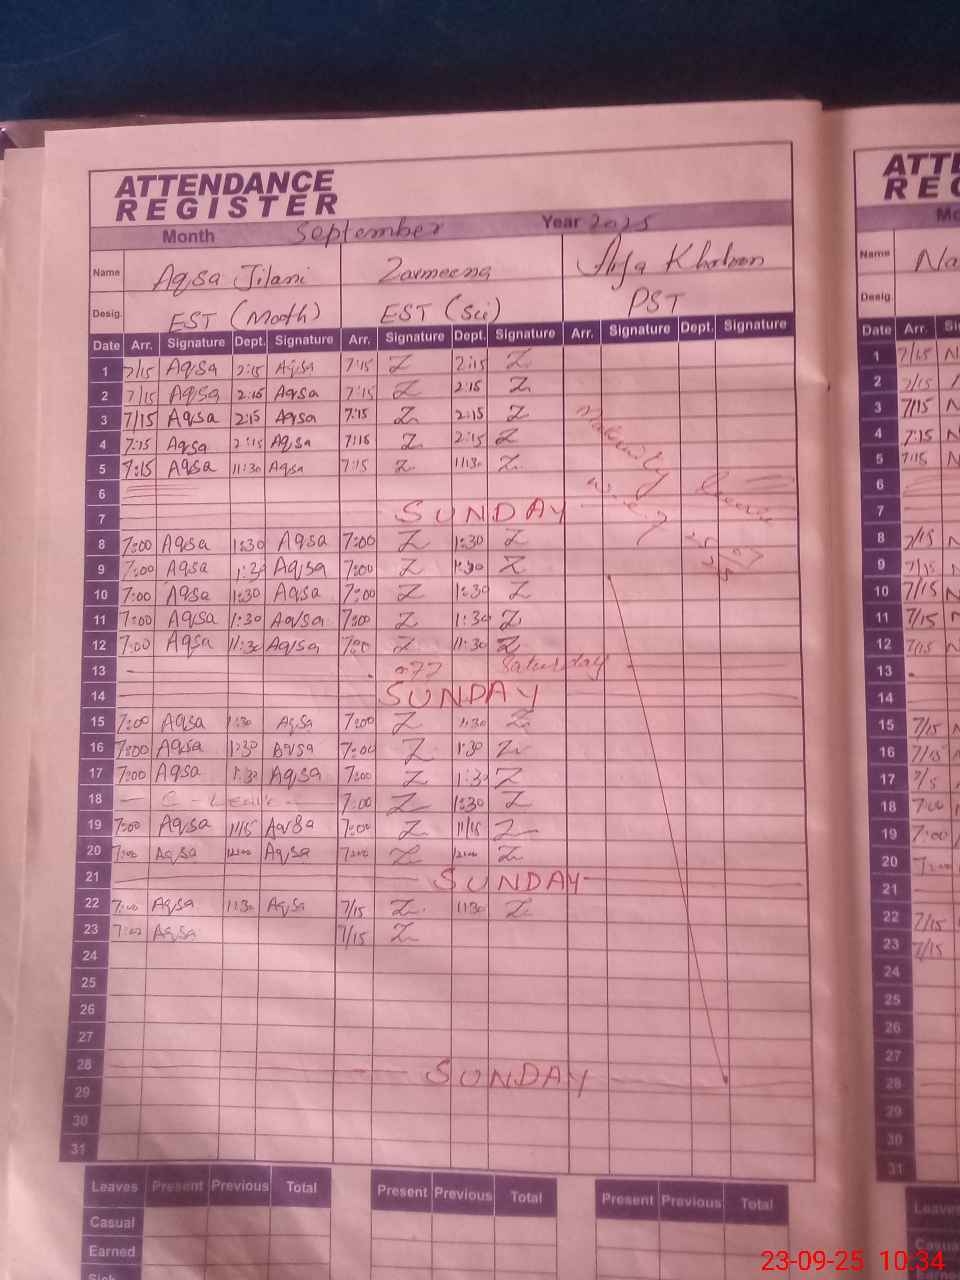 ATTENDANCE
REGISTER
Month September Year 2025
Name Aqsa Jilani Zarmeena Khatoon
Desig. EST (Math) EST (Sci) PST
Date Arr. Signature Dept. Signature Arr. Signature Dept. Signature Arr. Signature Dept. Signature
1 7/15 Aqsa 2:15 Aqsa 7:15 Z 2:15 Z
2 7/15 Aqsa 2:15 Aqsa 7:15 Z 2:15 Z
3 7/15 Aqsa 2:15 Aqsa 7:15 Z 2:15 Z
4 7:15 Aqsa 2:15 Aqsa 7:15 Z 2:15 Z
5 7:15 Aqsa 11:30 Aqsa 7:15 Z 11:30 Z
Maternity Leave
6
w.e.f
7 SUNDAY
8 7:00 Aqsa 1:30 Aqsa 7:00 Z 1:30 Z
9 7:00 Aqsa 1:30 Aqsa 7:00 Z 1:30 Z
10 7:00 Aqsa 1:30 Aqsa 7:00 Z 1:30 Z
11 7:00 Aqsa 1:30 Aqsa 7:00 Z 1:30 Z
12 7:00 Aqsa 11:30 Aqsa 7:00 Z 11:30 Z
13 Saturday
14 SUNDAY
15 7:00 Aqsa 1:30 Aqsa 7:00 Z 1:30 Z
16 7:00 Aqsa 1:30 Aqsa 7:00 Z 1:30 Z
17 7:00 Aqsa 1:30 Aqsa 7:00 Z 1:30 Z
18 C - Leave 7:00 Z 1:30 Z
19 7:00 Aqsa 11/15 Aqsa 7:00 Z 11/15 Z
20 7:00 Aqsa 12:00 Aqsa 7:00 Z 12:00 Z
21 SUNDAY
22 7:00 Aqsa 11:30 Aqsa 7/15 Z 11:30 Z
23 7:00 Aqsa 7/15 Z
24
25
26
27
28 SUNDAY
29
30
31
Leaves Present Previous Total Present Previous Total Present Previous Total
Casual
Earned
Sick
Name Na
Desig.
Date Arr.
1 7/15 N
2 7/15
3 7/15 N
4 7:15 N
5 7/15 N
6
7
8 7/15 N
9 7/15 N
10 7/15 N
11 7/15 N
12 7/15 N
13
14
15 7/15 N
16 7/15 N
17
18 7:00 N
19 7:00
20 7:00
21
22 7/15
23 7/15
24
25
26
27
28
29
30
31
Leaves
23-09-25 10:34